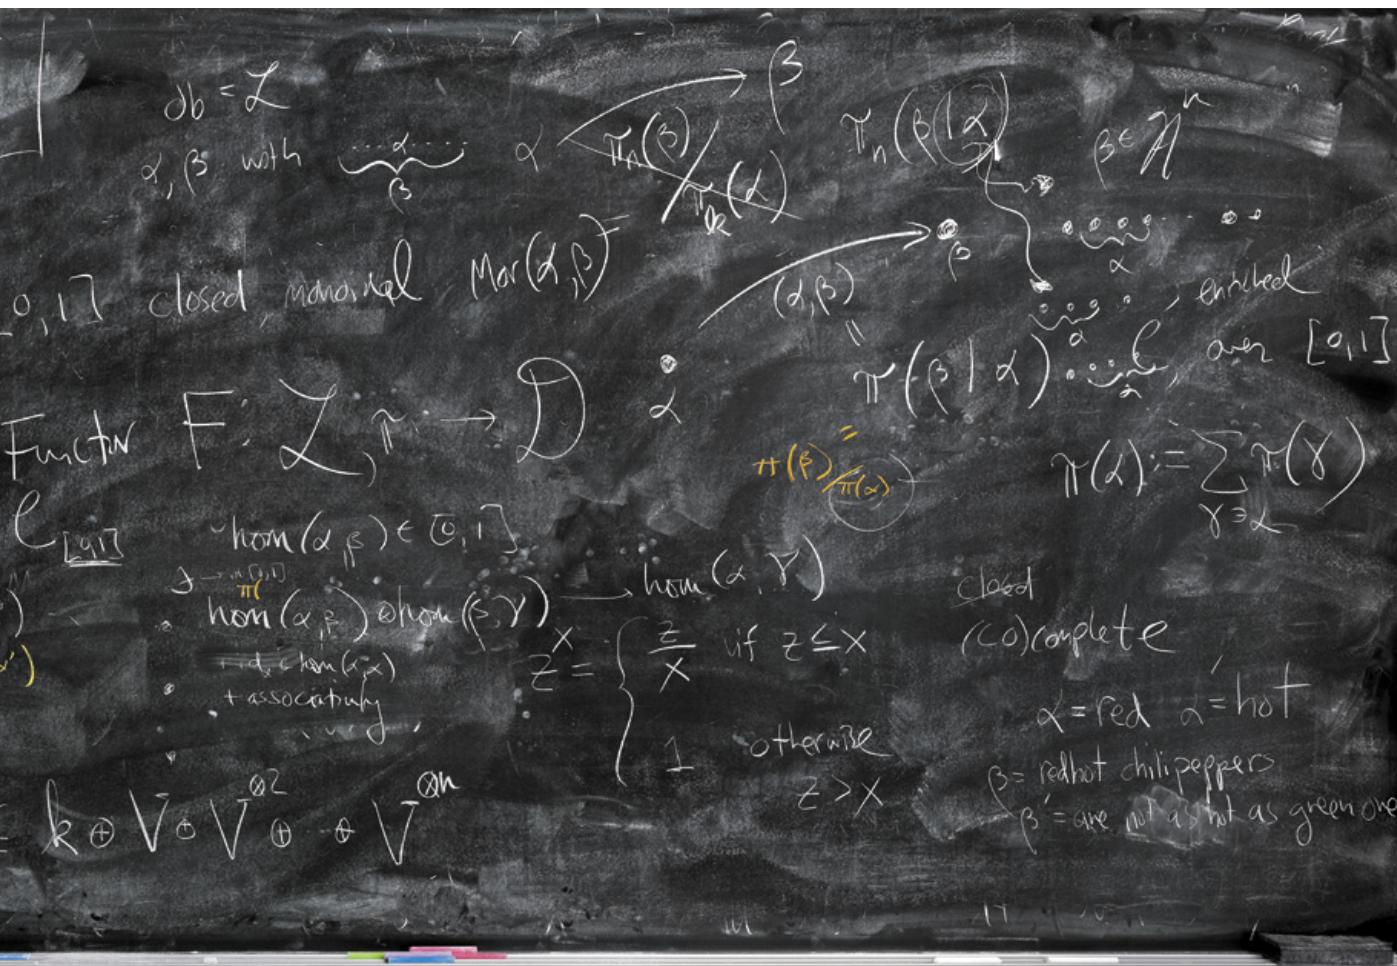 db = ℒ
α, β with ....α.... β
α → β
πₙ(β)/πₖ(α)
πₙ(β|α)
β ∈ 𝒜ⁿ
0,1] closed monoidal Mor(α,β) =
(α,β)
β
α
=
π(β|α)
α
α
α
C, enriched
over [0,1]
Functor F: ℒ, π → D α
π(β)/π(α) =
π(α) := Σ π(γ)
γ∋α
C[0,1]
hom(α,β) ∈ [0,1]
π(
hom(α,β) ⊗ hom(β,γ) → hom(α,γ)
+ associativity
zˣ = { z/x if z ≤ x
1 otherwise
z > x
closed
(co)complete
α = red α' = hot
β = red hot chili peppers
β' = are not as hot as green one
= k ⊕ V ⊕ V⊗2 ⊕ ... ⊕ V⊗n